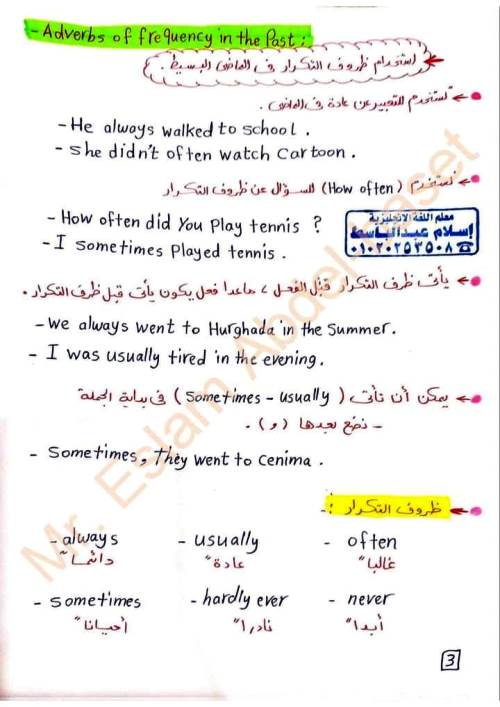 - Adverbs of frequency in the Past :
استخدام ظروف التكرار فى الماضى البسيط .
تستخدم للتعبير عن عادة فى الماضى .
- He always walked to school .
- she didn't often watch Cartoon .
نستخدم (How often) للسؤال عن ظروف التكرار
- How often did You Play tennis ?
- I sometimes Played tennis .
معلم اللغة الانجليزية
إسلام عبدالباسط
٠١٠٢٠٢٥٢٥٠٨
يأتى ظرف التكرار قبل الفعل ، ماعدا فعل يكون يأتى قبل ظرف التكرار .
- we always went to Hurghada in the Summer.
- I was usually tired in the evening.
يمكن أن تأتى (Sometimes - usually) فى بداية الجملة
- نضع بعدها (و) .
- Sometimes, They went to Cenima .
ظروف التكرار :-
- always - usually - often
دائماً عادةً غالباً
- sometimes - hardly ever - never
أحياناً نادراً أبداً
3
Mr. Eslam Abdelbaset